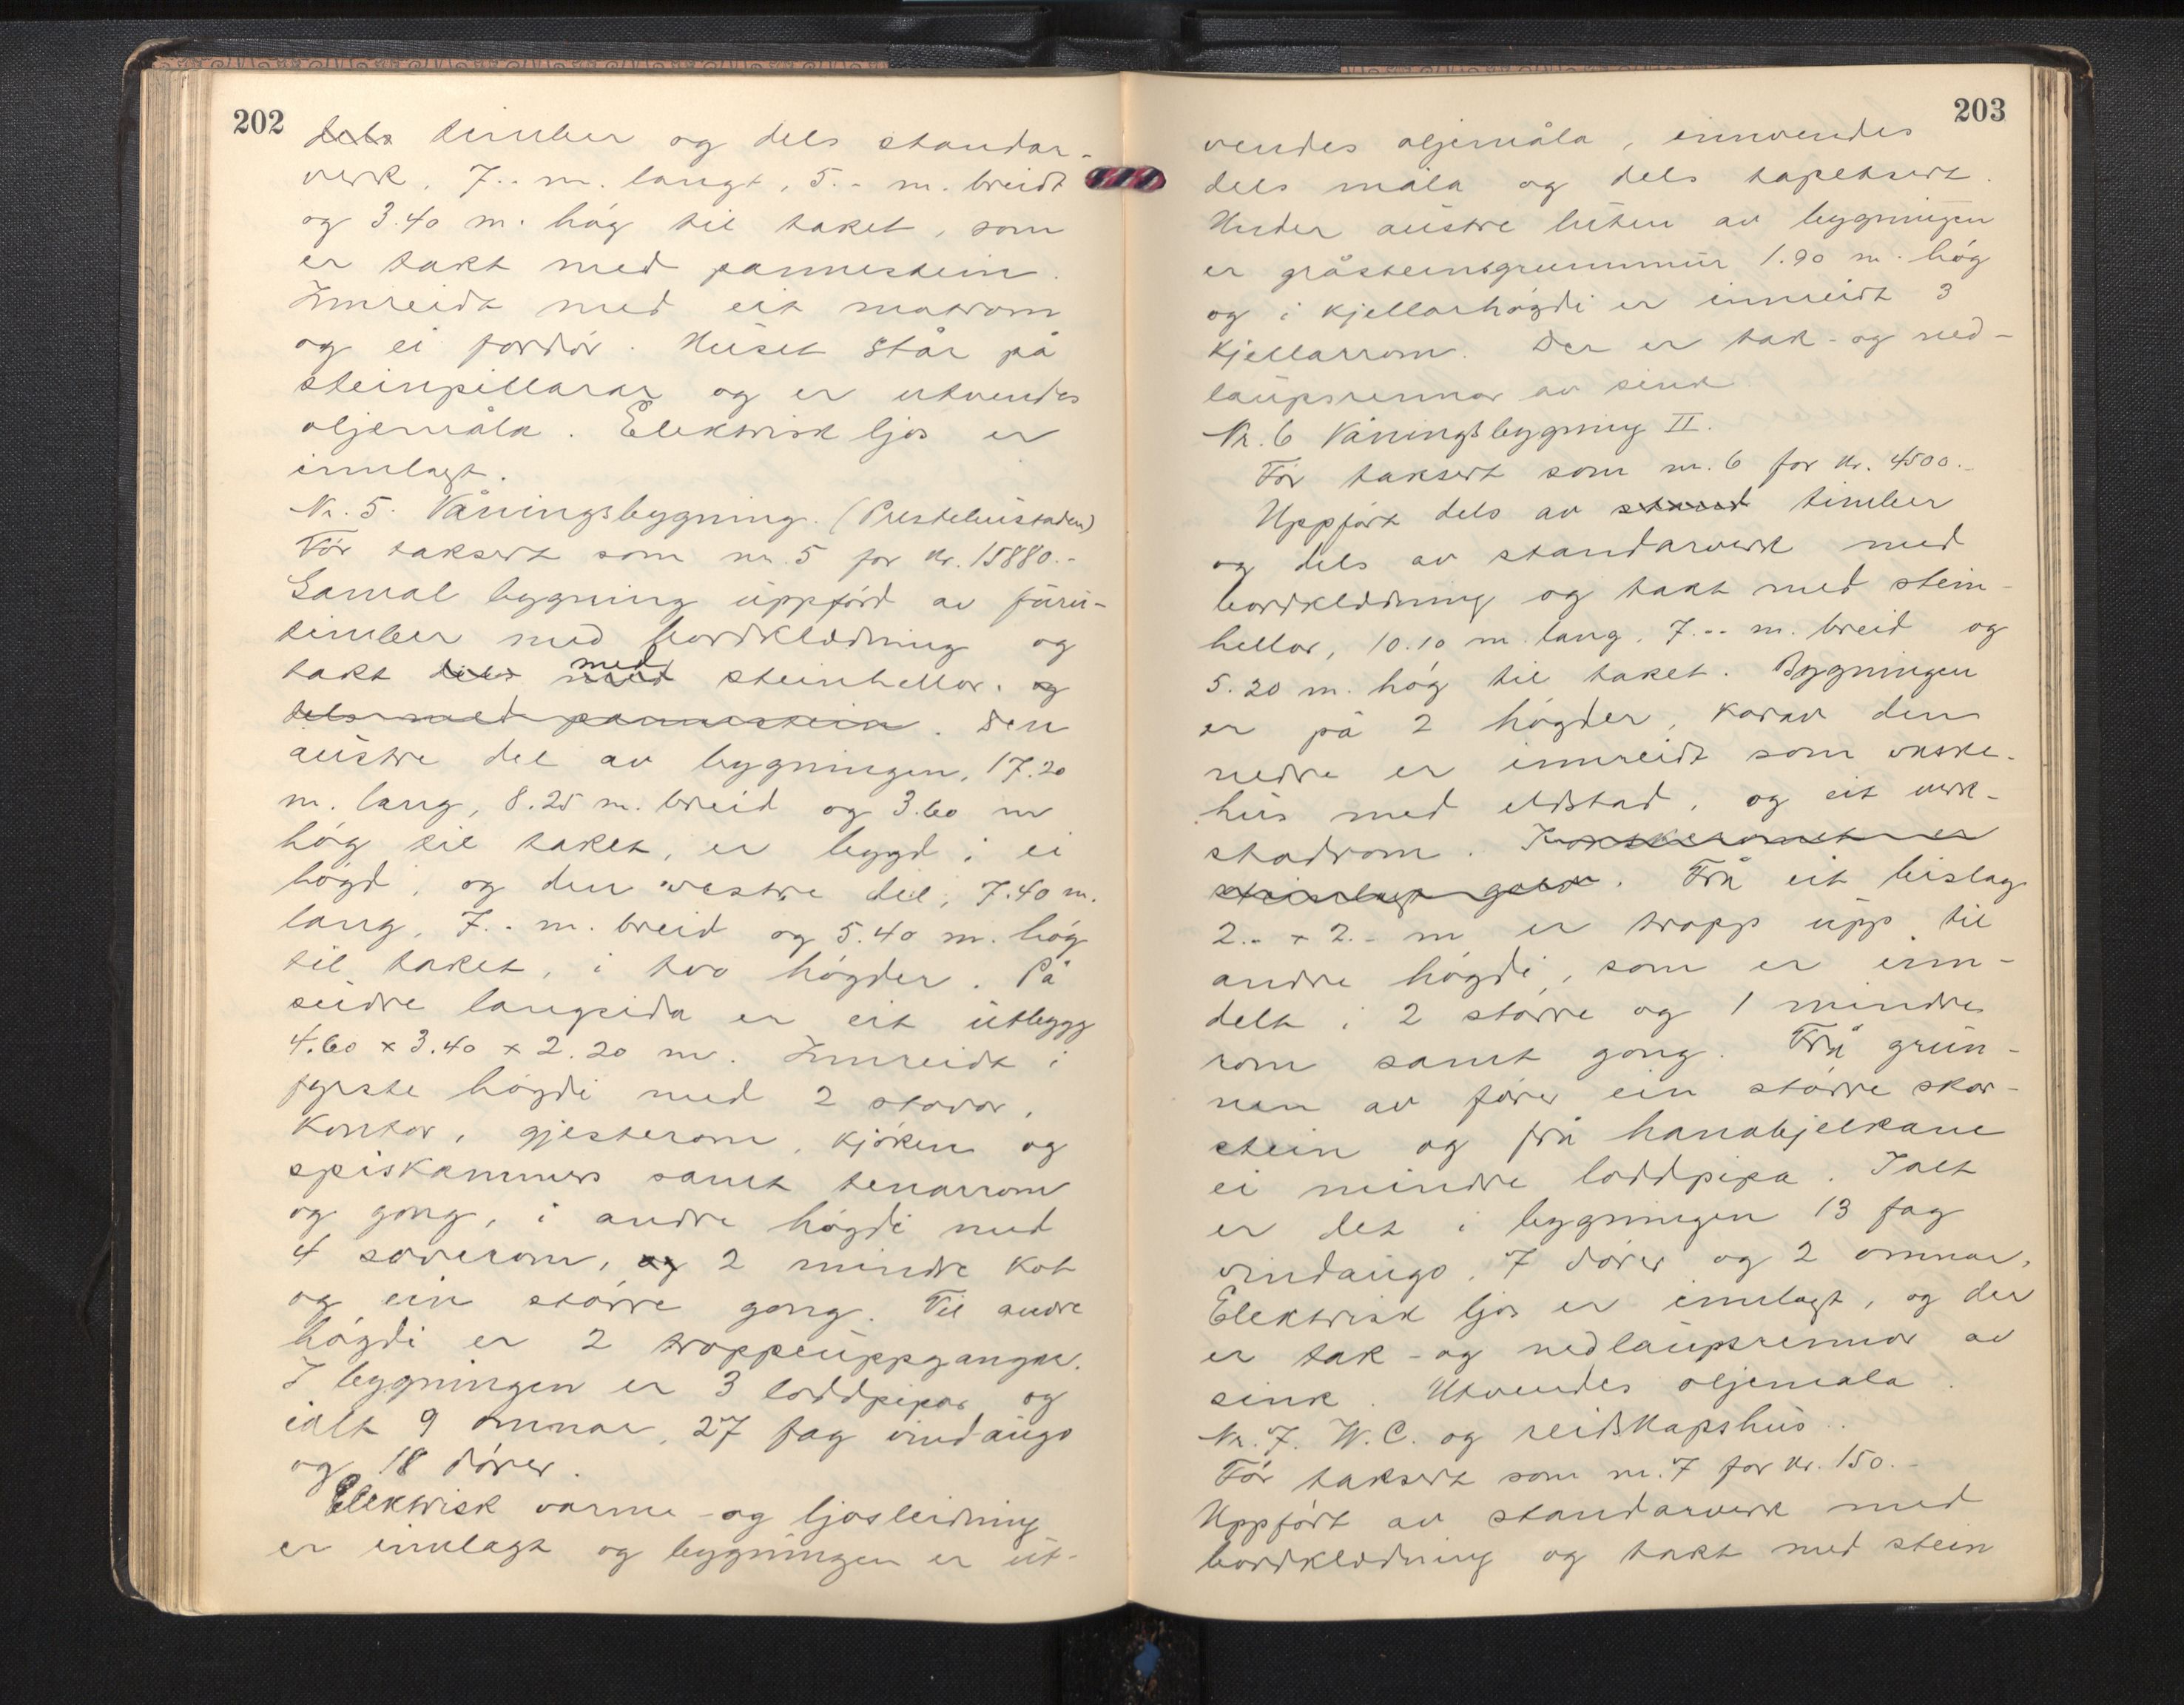 202
dels timber og dels standar-
verk, 7.- m. langt, 5.- m. breidt
og 3.40 m. høg til taket, som
er takt med pannestein.
Innreidt med eit matrom
og ei fordør. Huset står på
steinpillarar og er utvendes
oljemåla. Elektrisk ljos er
innlagt.
Nr. 5. Våningsbygning. (Prestebustaden)
Før taksert som nr. 5 for kr. 15880.-
Gamal bygning uppførd av furu-
timber med bordklædning og
takt dels med med steinhellor. og
dels med pannestein. Den
austre del av bygningen, 17.20
m. lang, 8.25 m. breid og 3.60 m
høg til taket, er bygd i ei
høgd, og den vestre del, 7.40 m.
lang, 7.- m. breid og 5.40 m. høg
til taket, i tvo høgder. På
sudre langsida er eit utbygg
4.60 x 3.40 x 2.20 m. Innreidt i
fyrste høgdi med 2 stovor,
kontor, gjesterom, kjøken og
spiskammers samt tenarrom
og gong, i andre høgdi med
4 soverom, og 2 mindre kot
og ein større gong. Til andre
høgdi er 2 troppeuppgangar.
I bygningen er 3 loddpipor og
ialt 9 omnar, 27 fag vindaugo
og 18 dører.
Elektrisk varme- og ljosleidning
er innlagt og bygningen er ut-
203
vendes oljemåla, innvendes
dels måla og dels tapetsert.
Under austre luten av bygningen
er gråsteinsgrunnmur 1.90 m. høg
og i kjellarhøgdi er innreidt 3
kjellarrom. Der er tak- og ned-
laupsrennor av sink
Nr. 6 Våningsbygning II.
Før taksert som nr. 6 for kr. 4500.-
Uppført dels av stand timber
og dels av standarverk med
bordklædning og takt med stein-
hellor, 10.10 m. lang, 7.- m. breid og
5.20 m. høg til taket. Bygningen
er på 2 høgder, korav den
nedre er innreidt som vaske-
hus med eldstad, og eit verk-
stadrom. I vaskeromet er
steinlagt golv. Frå eit bislag
2.- x 2.- m er tropp upp til
andre høgdi, som er inn-
delt i 2 større og 1 mindre
rom samt gong. Frå grun-
nen av fører ein større skor-
stein og frå hanabjelkane
ei mindre loddpipa. Ialt
er det i bygningen 13 fag
vindaugo, 7 dører og 2 omnar.
Elektrisk ljos er innlagt, og der
er tak- og nedlaupsrennor av
sink. Utvendes oljemåla.
Nr. 7. W.C. og reidskapshus.
Før taksert som nr. 7 for kr. 150.-
Uppført av standarverk med
bordklædning og takt med stein